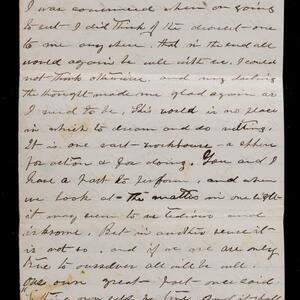 I was convinced when on going
to rest I did think of the dearest one
to me anywhere, that in the end all
would again be well with us. I could
not think otherwise, and my darling
the thought made me glad again as
I used to be. This world is no place
in which to dream and do nothing.
It is one vast workhouse - a sphere
for action & for doing. You and I
have a part to perform, and when
we look at the matter in one light
it may seem to us tedious and
irksome. But in another sense it
is not so, and if we are only
true to ourselves all will be well.
Our own great poet once said
own self be true